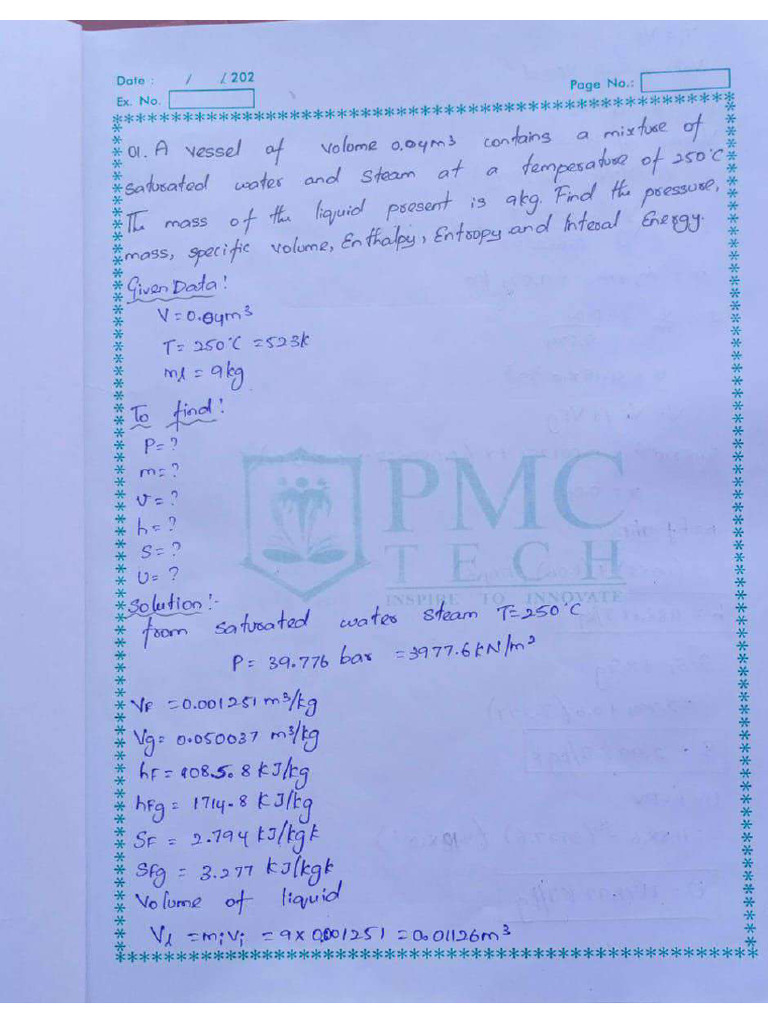 Date : / / 202
Page No.:
Ex. No.
01. A vessel of volome 0.04m3 contains a mixture of
saturated water and steam at a temperature of 250°C
The mass of the liquid present is 9kg. Find the pressure,
mass, specific volume, Enthalpy, Entropy and Interal Energy.
Given Data!
V = 0.04m3
T = 250°C = 523k
ml = 9kg
To find!
P = ?
m = ?
v = ?
h = ?
S = ?
U = ?
PMC
TECH
INSPIRE TO INNOVATE
Solution:-
from saturated water steam T = 250°C
P = 39.776 bar = 3977.6 kN/m2
VF = 0.001251 m3/kg
Vg = 0.050037 m3/kg
hF = 1085.8 kJ/kg
hFg = 1714.8 kJ/kg
SF = 2.794 kJ/kgk
SFg = 3.277 kJ/kgk
Volume of liquid
Vl = mivi = 9 x 0.001251 = 0.01126m3